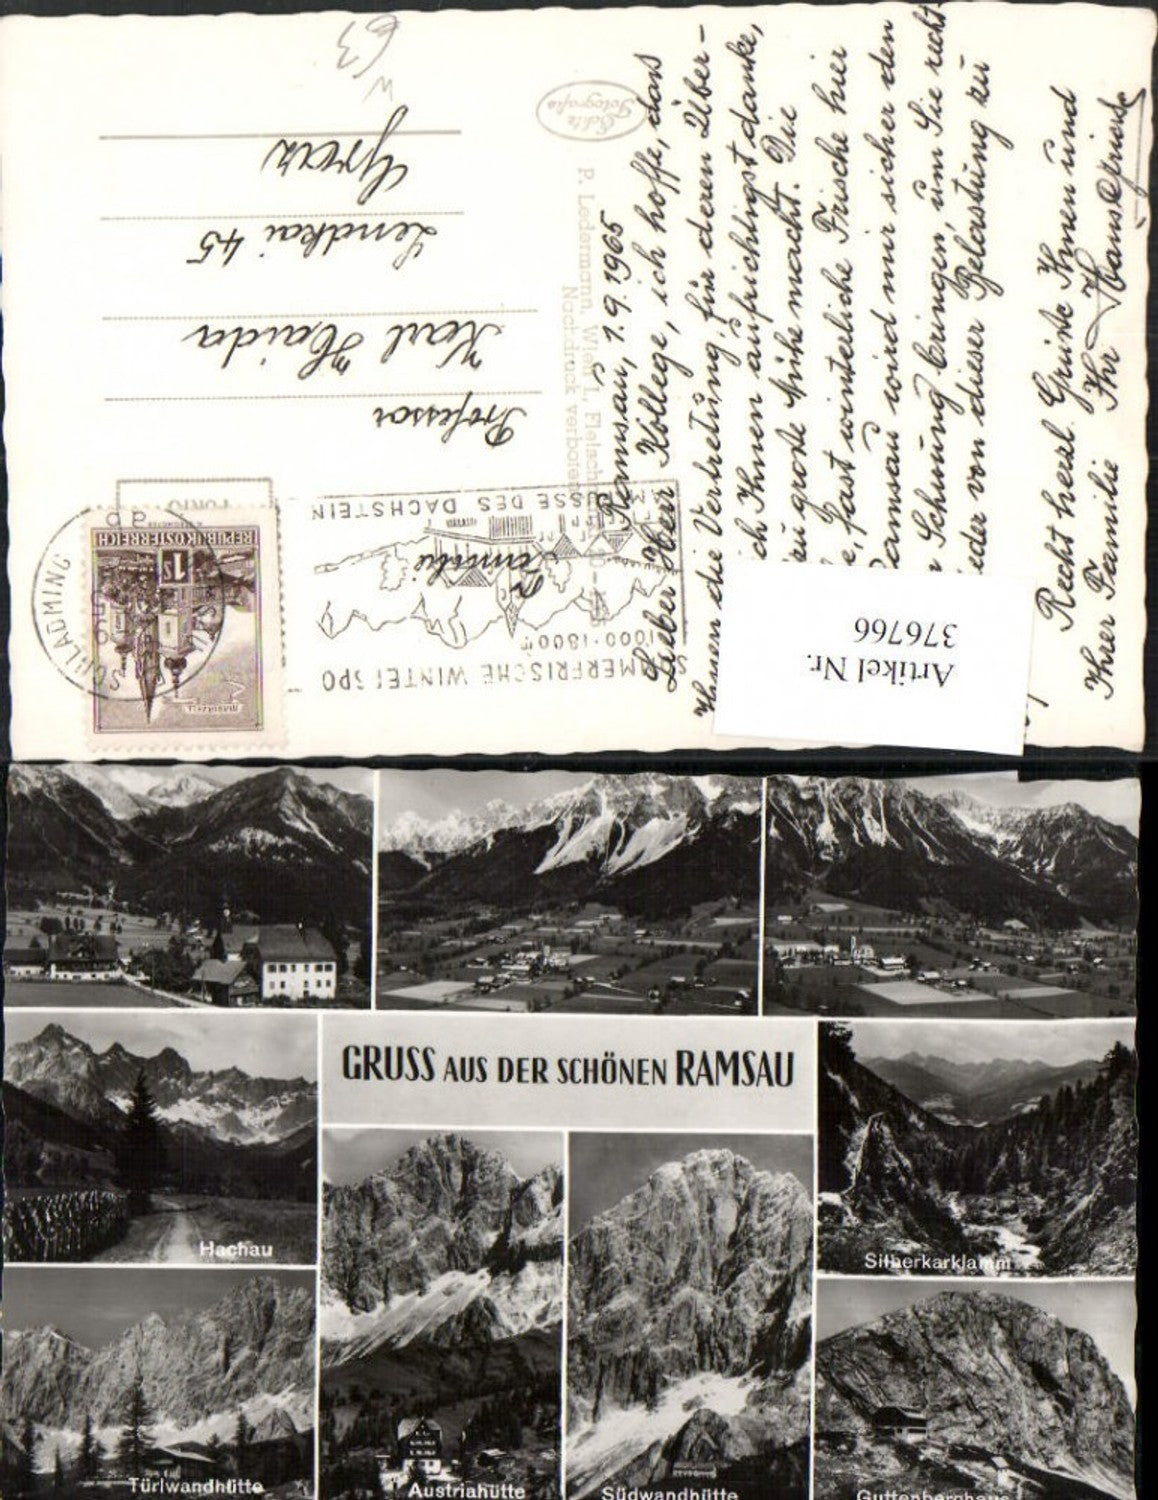 63
W
Echte
Fotografie
P. Ledermann, Wien I, Fleischm
Nachdruck verboten
PORTO
SCHLADMING
REPUBLIK ÖSTERREICH
1S
MARIAZELL
SOMMERFRISCHE WINTERSPO
1000-1800m
AM FUSSE DES DACHSTEIN
Familie
Professor
Karl Haida
Lendkai 45
Graz
Ramsau, 1.9.1965
Lieber Herr Kollege, ich hoffe, dass
Ihnen die Vertretung, für deren Über-
ich Ihnen aufrichtigst danke,
zu große Mühe macht. Die
, fast winterliche Frische hier
Ramsau wird mir sicher den
Schwung bringen, um Sie recht
wieder von dieser Belastung zu
Recht herzl. Grüße Ihnen und
Ihrer Familie Ihr
Artikel Nr.
376766
GRUSS AUS DER SCHÖNEN RAMSAU
Hachau
Silberkarklamm
Türlwandhütte
Austriahütte
Südwandhütte
Guttenberghaus